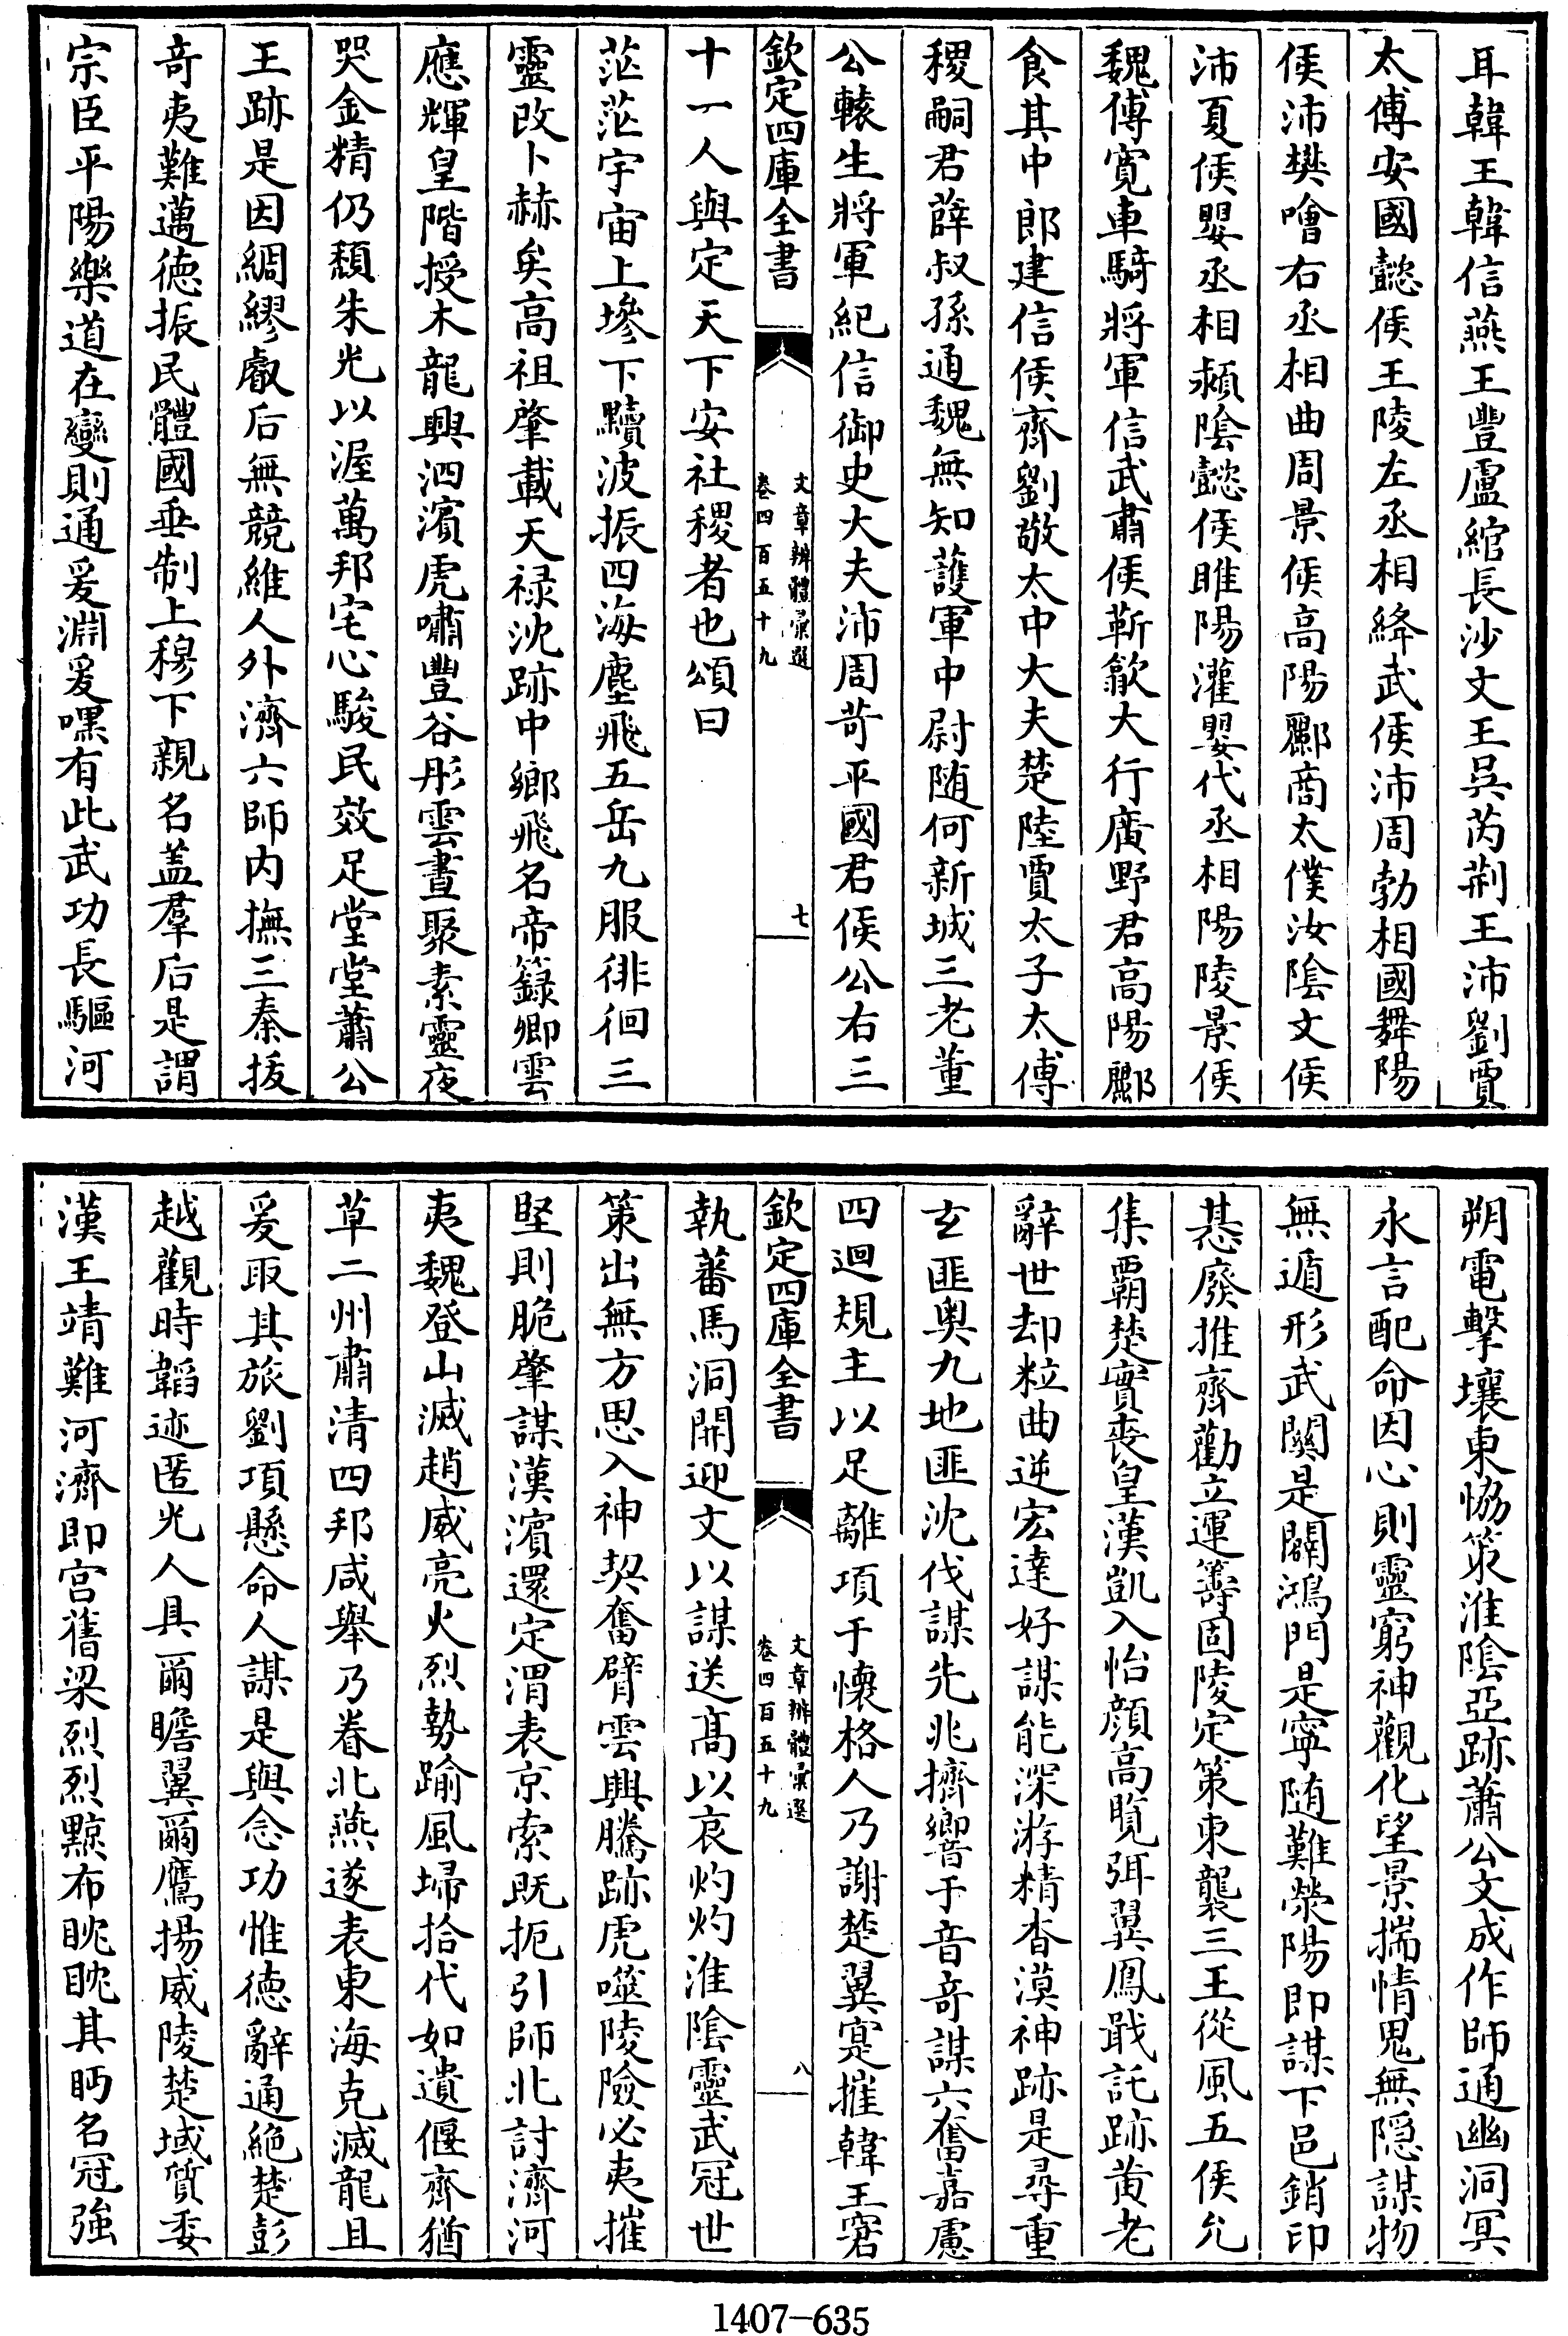 耳韓王韓信燕王豐盧綰長沙文王吳芮荆王沛劉賈
太傅安國懿侯王陵左丞相絳武侯沛周勃相國舞陽
侯沛樊噲右丞相曲周景侯高陽酈商太僕汝隂文侯
沛夏侯嬰丞相潁隂懿侯睢陽灌嬰代丞相陽陵景侯
魏傅寛車騎將軍信武肅侯靳歙大行廣野君高陽酈
食其中郎建信侯齊劉敬太中大夫楚陸賈太子太傅
稷嗣君薛叔孫通魏無知護軍中尉随何新城三老董
公轅生將軍紀信御史大夫沛周苛平國君侯公右三
欽定四庫全書
文章辨體彙選
卷四百五十九
七
十一人與定天下安社稷者也頌曰
茫茫宇宙上墋下黷波振四海塵飛五岳九服徘徊三
靈改卜赫矣高祖肇載天禄沈跡中鄉飛名帝籙卿雲
應輝皇階授木龍興泗濱虎嘯豐谷彤雲晝聚素靈夜
哭金精仍頽朱光以渥萬邦宅心駿民效足堂堂蕭公
王跡是因綢繆叡后無競維人外濟六師内撫三秦拔
奇夷難邁德振民體國垂制上穆下親名盖羣后是謂
宗臣平陽樂道在變則通爰淵爰嘿有此武功長驅河
朔電擊壤東恊策淮隂亞跡蕭公文成作師通幽洞冥
永言配命因心則靈窮神觀化望景揣情鬼無隠謀物
無遁形武關是闢鴻門是寧随難滎陽即謀下邑銷印
惎廢推齊勸立運籌固陵定策東襲三王從風五侯允
集霸楚實喪皇漢凱入怡顔高覽弭翼鳳戢託跡黄老
辭世却粒曲逆宏達好謀能深游精杳漠神跡是尋重
玄匪奥九地匪沈伐謀先兆擠響于音竒謀六奮嘉慮
四迴規主以足離項于懷格人乃謝楚翼寔摧韓王窘
欽定四庫全書
文章辨體彙選
卷四百五十九
八
執蕃馬洞開迎文以謀送髙以哀灼灼淮隂靈武冠世
策出無方思入神契奮臂雲興騰跡虎噬陵險必夷摧
堅則脆肇謀漢濱還定渭表京索既扼引師北討濟河
夷魏登山滅趙威亮火烈勢踰風埽拾代如遺偃齊猶
草二州肅清四邦咸舉乃眷北燕遂表東海克滅龍且
爰取其旅劉項懸命人謀是與念功惟德辭通絶楚彭
越觀時韜迹匿光人具爾瞻翼爾鷹揚威陵楚域質委
漢王靖難河濟即宫舊梁烈烈黥布眈眈其眄名冠強
1407-635